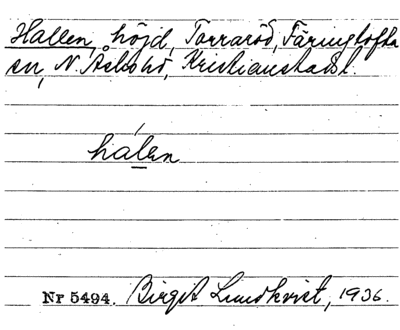 Hallen, höjd, Torraröd, Färingtofta
sn, N. Åsbohd, Kristianstads l.
hálen
Nr 5494. Birgit Lundkvist, 1936.